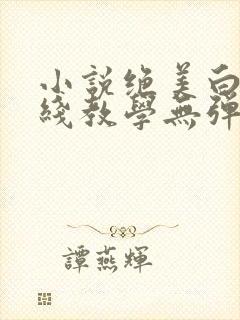 小說絶美白
綫教學無彈
譚燕輝